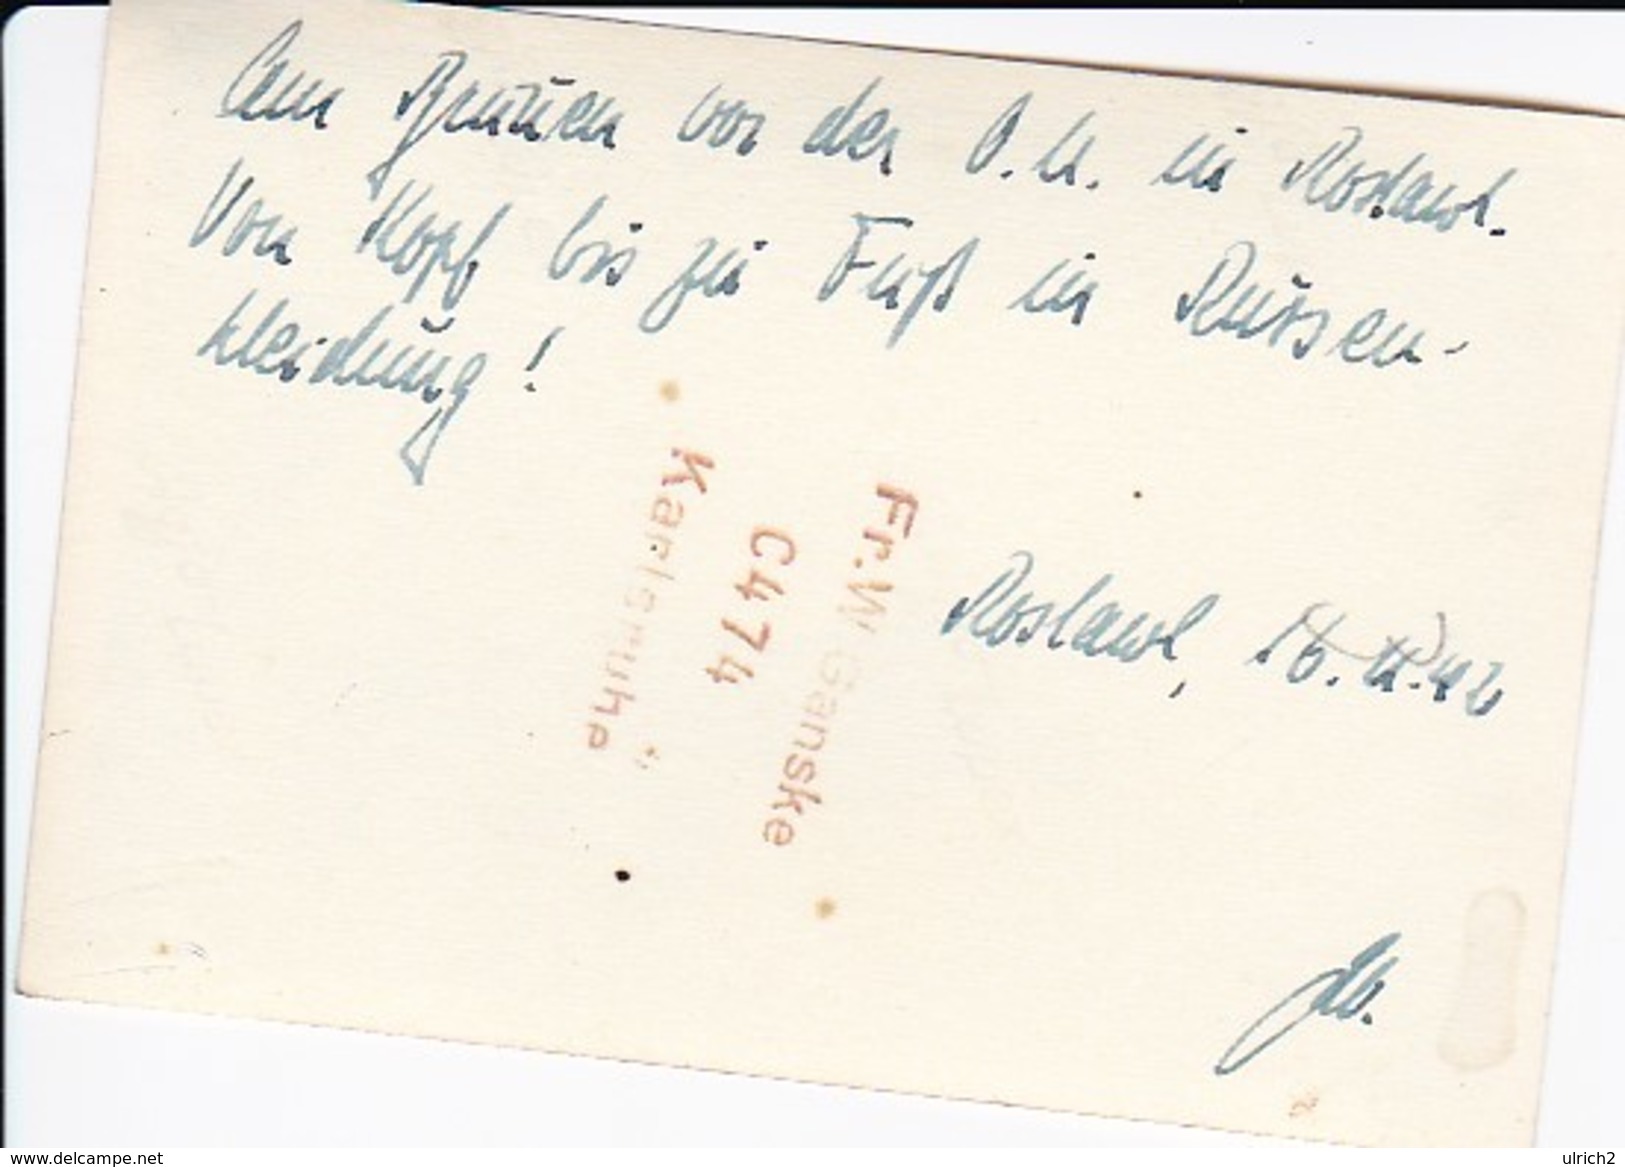 Am Brunnen vor der O.U. in Roslawl.
Von Kopf bis zu Fuß in Russen-
kleidung!
Fr.W.Ganske
C474
Karlsruhe
Roslawl, 16. II. 42
www.delcampe.net
ulrich2